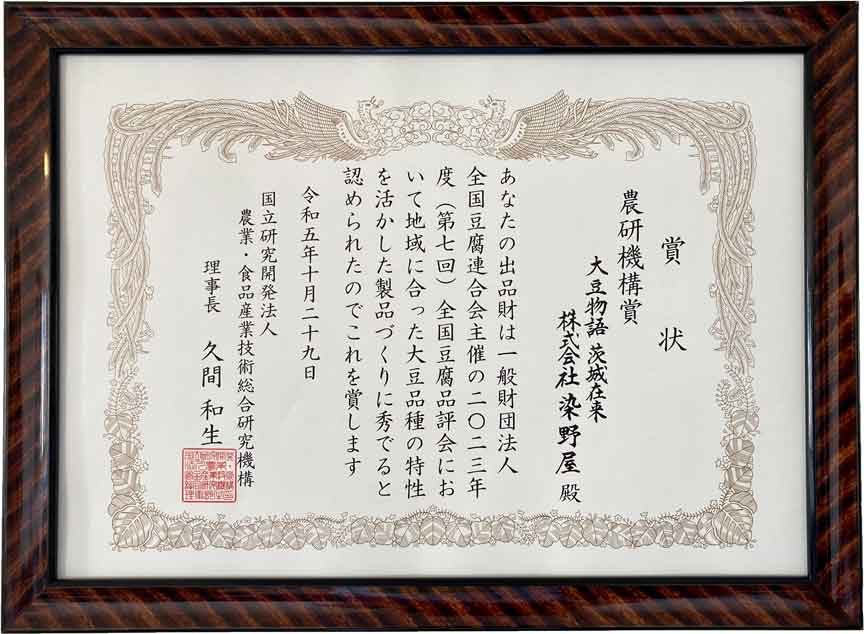 賞状
農研機構賞
大豆物語 茨城在来
株式会社染野屋 殿
あなたの出品財は一般財団法人
全国豆腐連合会主催の二〇二三年
度（第七回）全国豆腐品評会にお
いて地域に合った大豆品種の特性
を活かした製品づくりに秀でると
認められたのでこれを賞します
令和五年十月二十九日
国立研究開発法人
農業・食品産業技術総合研究機構
理事長 久間 和生